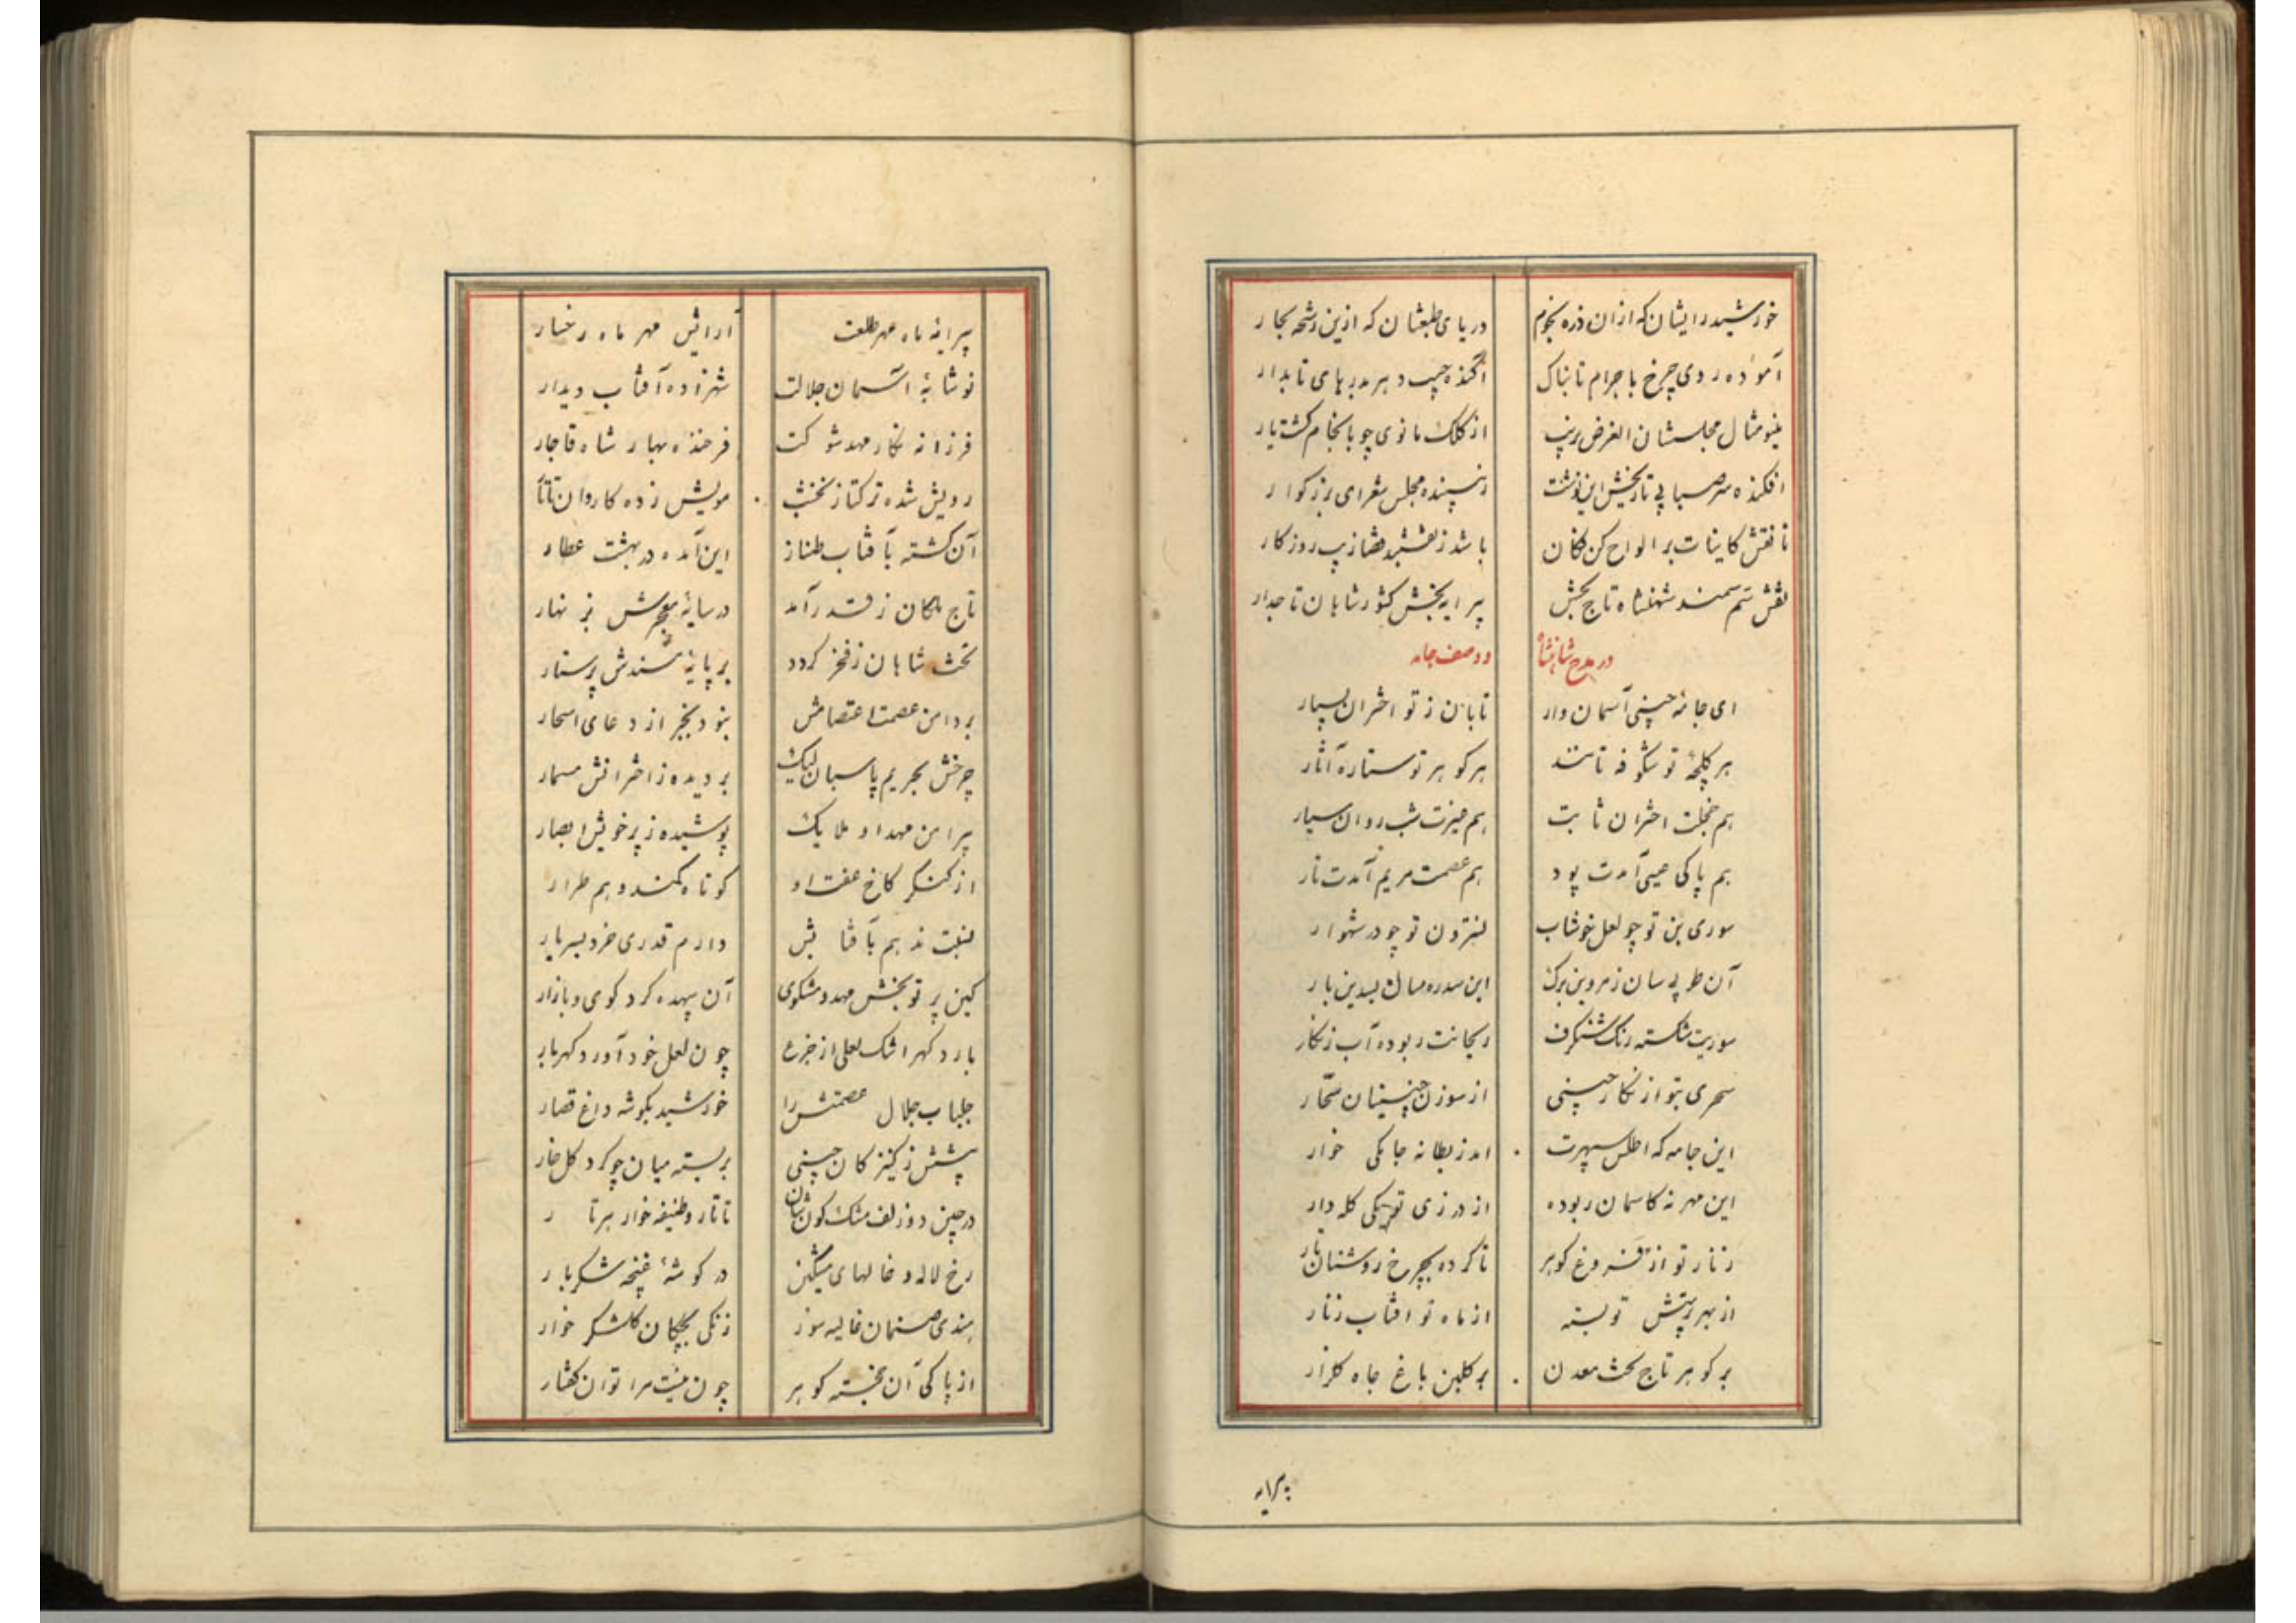 خورشید رایشان که از ان ذره نجوم دریای طبعشان که ازین رشحه بحار
آموده روی چرخ باجرام تابناک اکنده جیب دهر بدرهای تابدار
مینو مثال مجلسشان الغرض بزیب از کلک مانوی چو بانجام کشت یار
افکنده سر صبا پی تاریخش این نوشت زیبنده مجلس شعرای بزرکوار
تا نقش کاینات بر الواح کن فکان باشد ز نقشبند قضا زیب روزکار
نقش سم سمند شهنشاه تاج بخش پیرایه بخش کشور شاهان تاجدار
در مدح شاهنشاه و وصف جامه
ای جامه چینی آسمان وار تابان ز تو اختران بسیار
هر کلچه تو شکوفه مانند هر کوهر تو ستاره آثار
هم خجلت اختران ثابت هم غیرت شب روان سیار
هم پاکی عیسی آمدت پود هم عصمت مریم آمدت تار
سوری بن تو چو لعل خوشاب نسترون تو چو در شهوار
آن طوبی سان زمردین برک این سدره مثال بسدین بار
سوریت شکسته رنک شنکرف ریحانت ربوده آب زنکار
سحری بتو از نکار چینی از سوزن چینیان سحار
این جامه که اطلس سپهرت امد ز بطانه جامکی خوار
این مهر نه کاسمان ربوده از درزی تو یکی کله دار
زنار تو از فروغ کوهر تا کرده بچرخ روشنان تار
از بهر پرستش تو بسته از ماه تو افتاب زنار
بر کوهر تاج بخت معدن بر کلبن باغ جاه کلزار
پیرایه
پیرایه ماه مهر طلعت آرایش مهر ماه رخسار
نوشابه اسمان جلالت شهزاده آفتاب دیدار
فرزانه نکار مهد شوکت فرخنده بهار شاه قاجار
رویش شده ترکتاز نخشب مویش زده کاروان تاتار
آن کشته بآفتاب طناز این آمده در بهشت عطار
تاج ملکان ز قدر آمد در سایه معجرش نهار
تخت شاهان ز فخر کردد بر پایه مسندش پرستار
بر دامن عصمت اعتصامش نبود بجز از دعای اسحار
چرخش بحریم پاسبان لیک بر دیده ز اخترانش مسمار
پیرامن مهد او ملایک پوشیده ز پر خویش ابصار
از کنکر کاخ عفت او کوتاه کمند وهم طرار
نسبت ندهم بآفتابش دارم قدری خرد بسربار
کین پرتو بخش مهد و مشکوی آن بیهده کرد کوی و بازار
بارد کهر اشک لعلی از جزع چون لعل خود آورد کهربار
جلباب جلال عصمتش را خورشید بکوشه داغ قصار
پیشش ز کنیزکان چینی بربسته میان چو کرد کل خار
در چین دو زلف مشک کونشان تاتار وظیفه خوار هر تار
رخ لاله و خالهای مشکین در کوشه غنچه شکربار
هندی صنمان غالیه موز زنکی بچکان کلشکر خوار
از پاکی آن خجسته کوهر چون نیست مرا توان کفتار